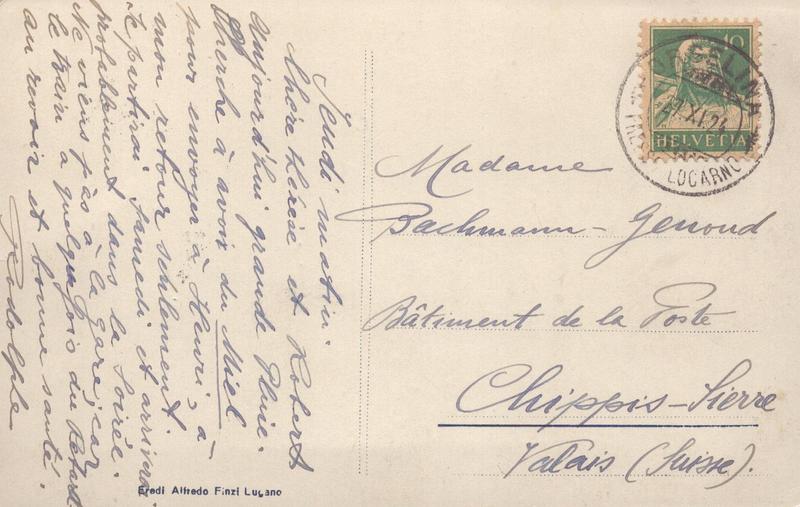 Jeudi matin
Chère Thérèse et Robert
Aujourd'hui grande Pluie.
Cherche à avoir du Miel
pour envoyer à Henri, à
mon retour seulement.
Je partirai Samedi et arriverai
probablement dans la Soirée.
Ne viens pas à la gare, car
le train a quelquefois du Retard.
au revoir et bonne santé.
Rodolphe
Eredi Alfredo Finzi Lugano
10
HELVETIA
XI.24
LOCARNO
Madame
Bachmann-Genoud
Bâtiment de la Poste
Chippis-Sierre
Valais (Suisse).